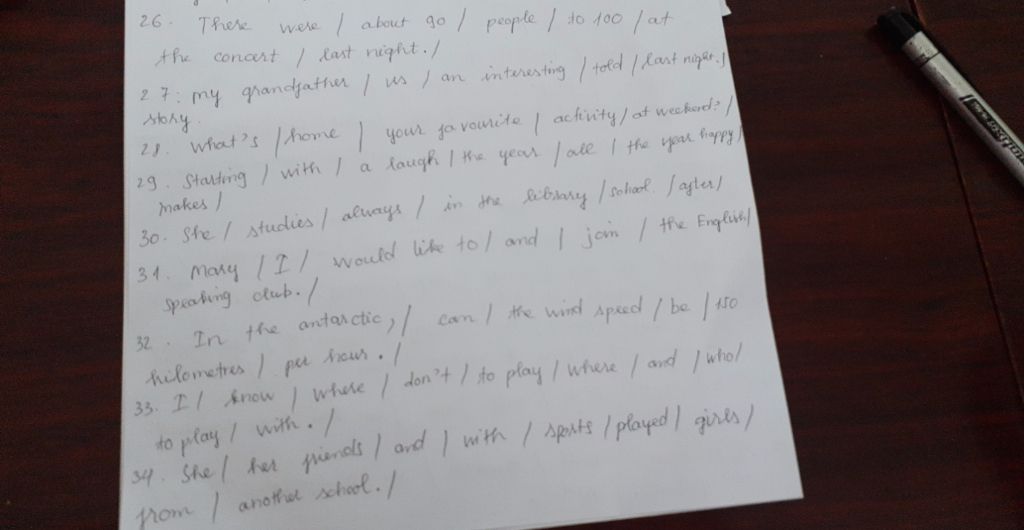 26. There were / about 90 / people / to 100 / at
the concert / last night. /
27: my grandfather / us / an interesting / told / last night. /
story.
28. What's / home / your favourite / activity / at weekend? /
29. Starting / with / a laugh / the year / all / the year happy /
makes /
30. She / studies / always / in the library / school. / after /
31. Mary / I / would like to / and / join / the English /
speaking club. /
32. In the antarctic, / can / the wind speed / be / 150
kilometres / per hour. /
33. I / know / where / don't / to play / where / and / who /
to play / with. /
34. She / her friends / and / with / sports / played / girls /
from / another school. /